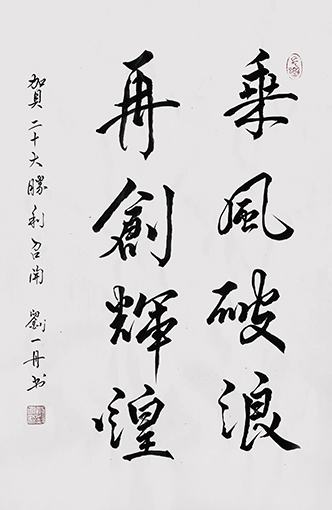 乘風破浪
再創輝煌
賀二十大勝利召開 劉一丹书